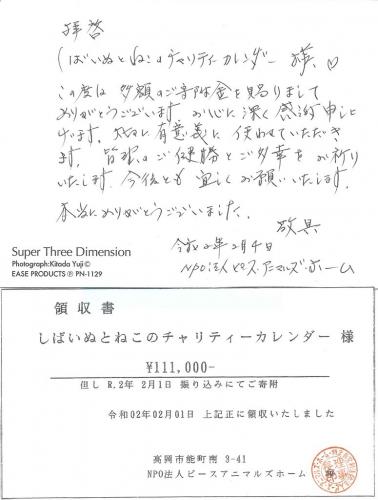 拝啓
しばいぬとねこのチャリティーカレンダー 様、♡
この度は 多額のご寄附金を賜りまして
ありがとうございます。お心に深く感謝申し上
げます。大切に有意義に使わせていただきま
す。皆様のご健勝とご多幸をお祈り
いたします。今後とも宜しくお願いいたします。
本当にありがとうございました。
敬具
令和2年2月4日
NPO法人ピース・アニマルズ・ホーム
Super Three Dimension
Photograph:Kitada Yuji©
EASE PRODUCTS ® PN-1129
領収書
しばいぬとねこのチャリティーカレンダー 様
¥111,000-
但し R.2年 2月1日 振り込みにてご寄附
令和02年02月01日 上記正に領収いたしました
高岡市能町南 3-41
NPO法人ピースアニマルズホーム